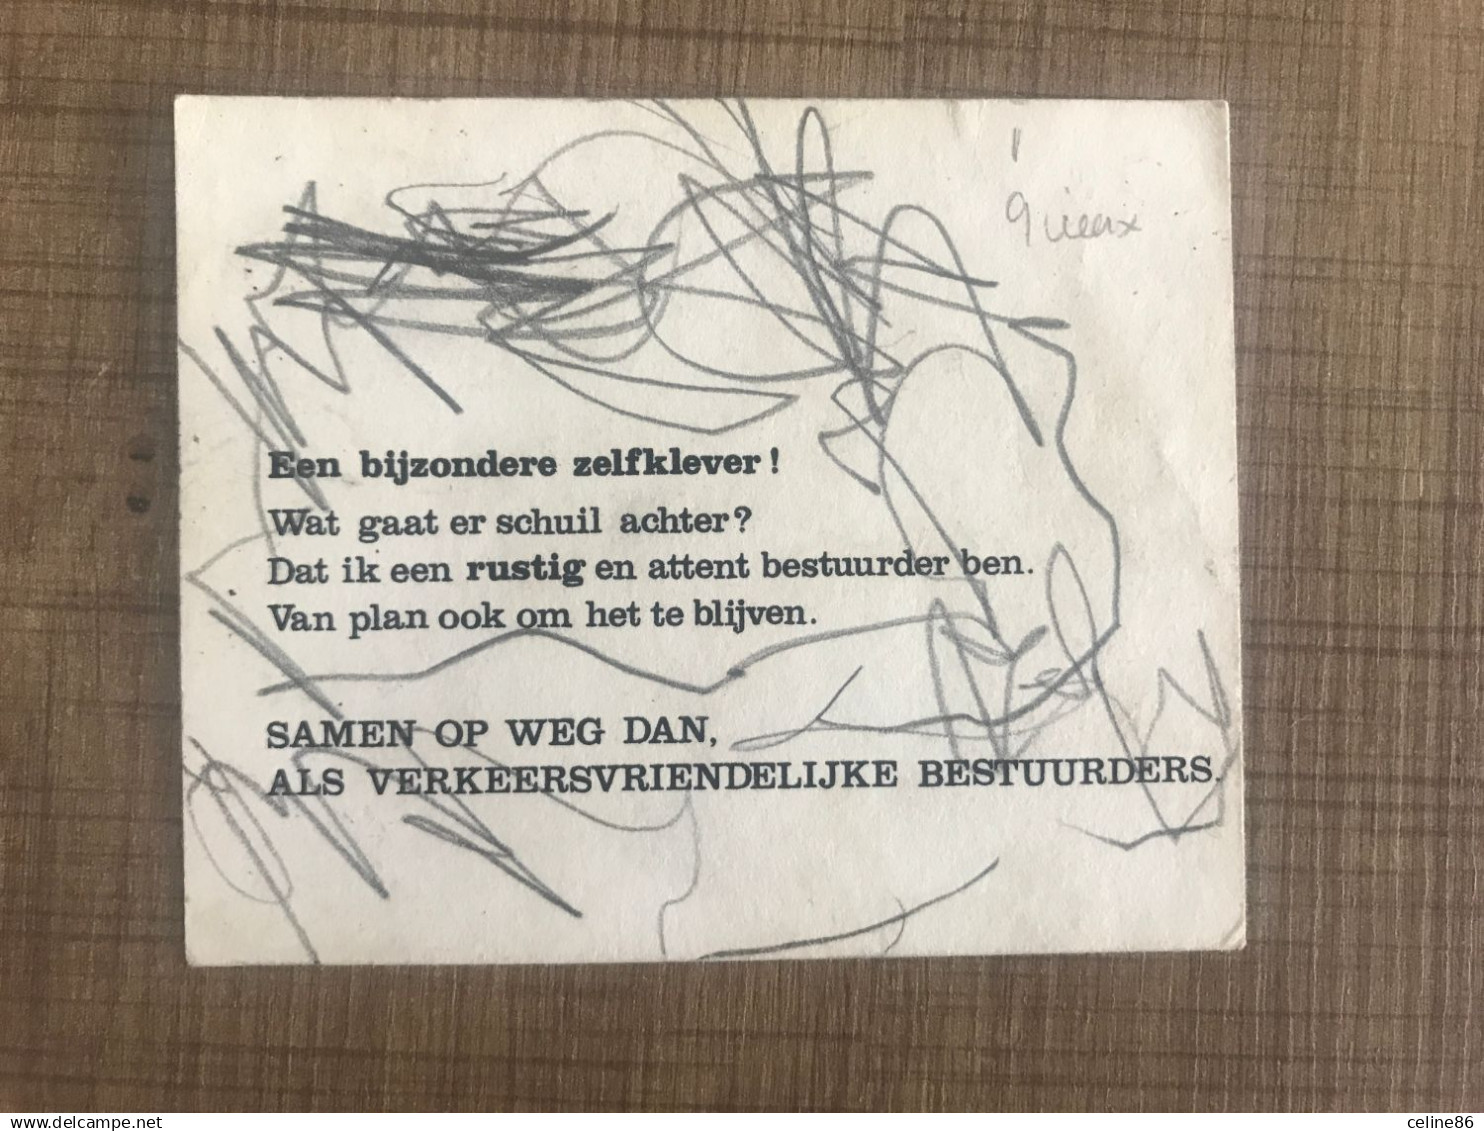 Een bijzondere zelfklever!
Wat gaat er schuil achter?
Dat ik een rustig en attent bestuurder ben.
Van plan ook om het te blijven.
SAMEN OP WEG DAN,
ALS VERKEERSVRIENDELIJKE BESTUURDERS.
Delcampe.net
celine86